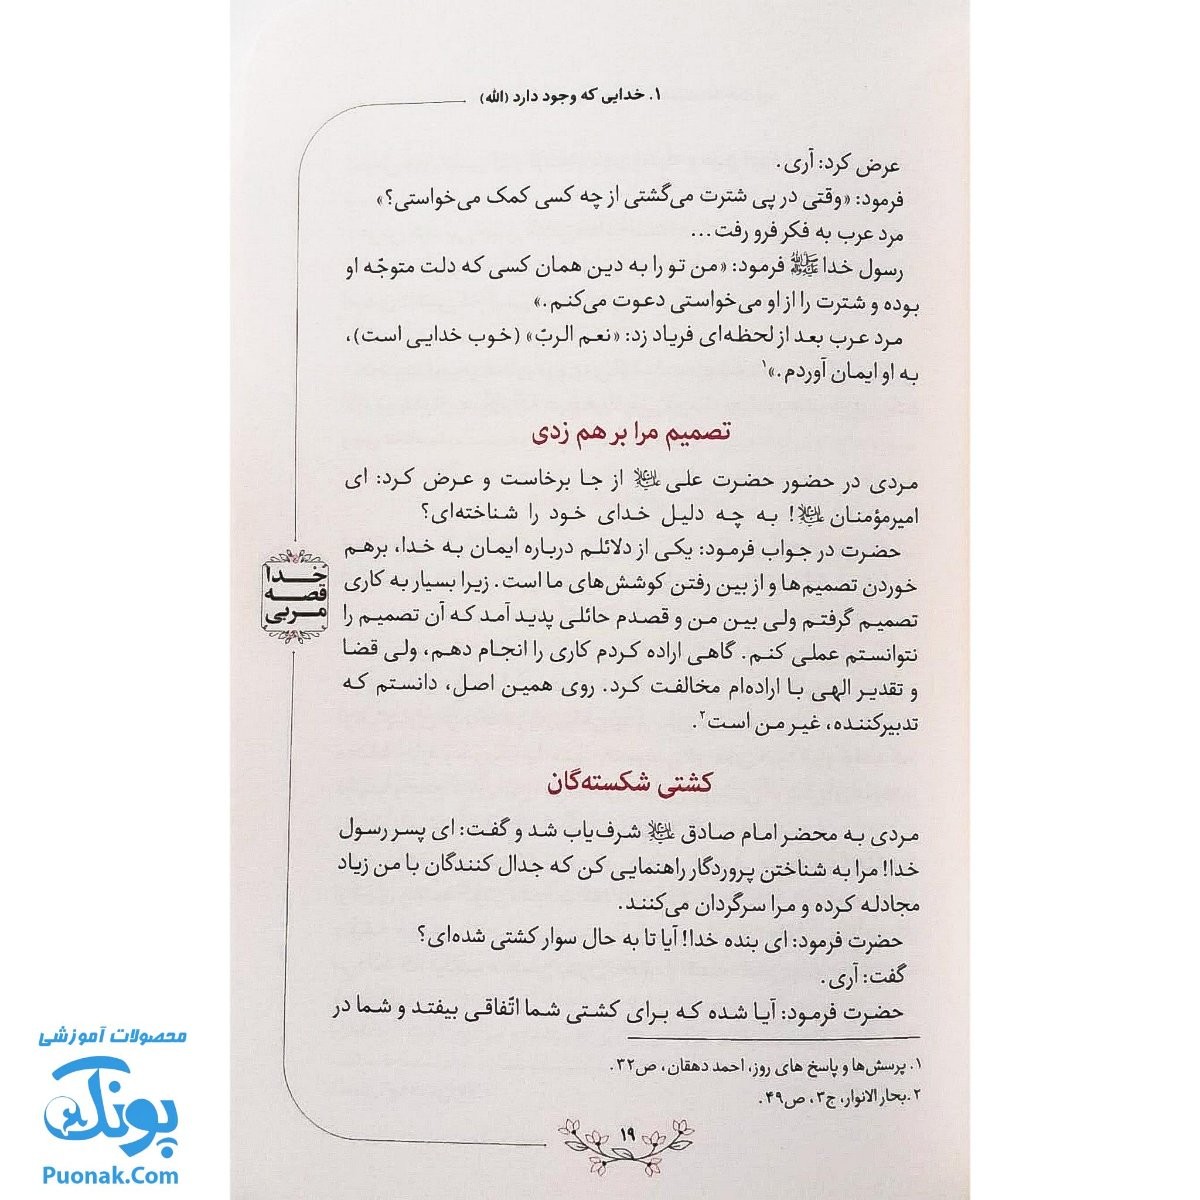 ۱. خدایی که وجود دارد (الله)
عرض کرد: آری.
فرمود: «وقتی در پی شترت می‌گشتی از چه کسی کمک می‌خواستی؟»
مرد عرب به فکر فرو رفت...
رسول خدا ﷺ فرمود: «من تو را به دین همان کسی که دلت متوجّه او
بوده و شترت را از او می‌خواستی دعوت می‌کنم.»
مرد عرب بعد از لحظه‌ای فریاد زد: «نعم الربّ» (خوب خدایی است)،
به او ایمان آوردم.»۱
تصمیم مرا بر هم زدی
مردی در حضور حضرت علی علیه‌السلام از جا برخاست و عرض کرد: ای
امیرمؤمنان علیه‌السلام! به چه دلیل خدای خود را شناخته‌ای؟
حضرت در جواب فرمود: یکی از دلائلم درباره ایمان به خدا، برهم
خوردن تصمیم‌ها و از بین رفتن کوشش‌های ما است. زیرا بسیار به کاری
تصمیم گرفتم ولی بین من و قصدم حائلی پدید آمد که آن تصمیم را
نتوانستم عملی کنم. گاهی اراده کردم کاری را انجام دهم، ولی قضا
و تقدیر الهی با اراده‌ام مخالفت کرد. روی همین اصل، دانستم که
تدبیرکننده، غیر من است۲.
کشتی شکسته‌گان
مردی به محضر امام صادق علیه‌السلام شرف‌یاب شد و گفت: ای پسر رسول
خدا! مرا به شناختن پروردگار راهنمایی کن که جدال کنندگان با من زیاد
مجادله کرده و مرا سرگردان می‌کنند.
حضرت فرمود: ای بنده خدا! آیا تا به حال سوار کشتی شده‌ای؟
گفت: آری.
حضرت فرمود: آیا شده که برای کشتی شما اتّفاقی بیفتد و شما در
۱. پرسش‌ها و پاسخ های روز، احمد دهقان، ص۳۲.
۲.بحار الانوار، ج۳، ص۴۹.
۱۹
خدا
قصه
مربی
محصولات آموزشی
پونک
Puonak.Com